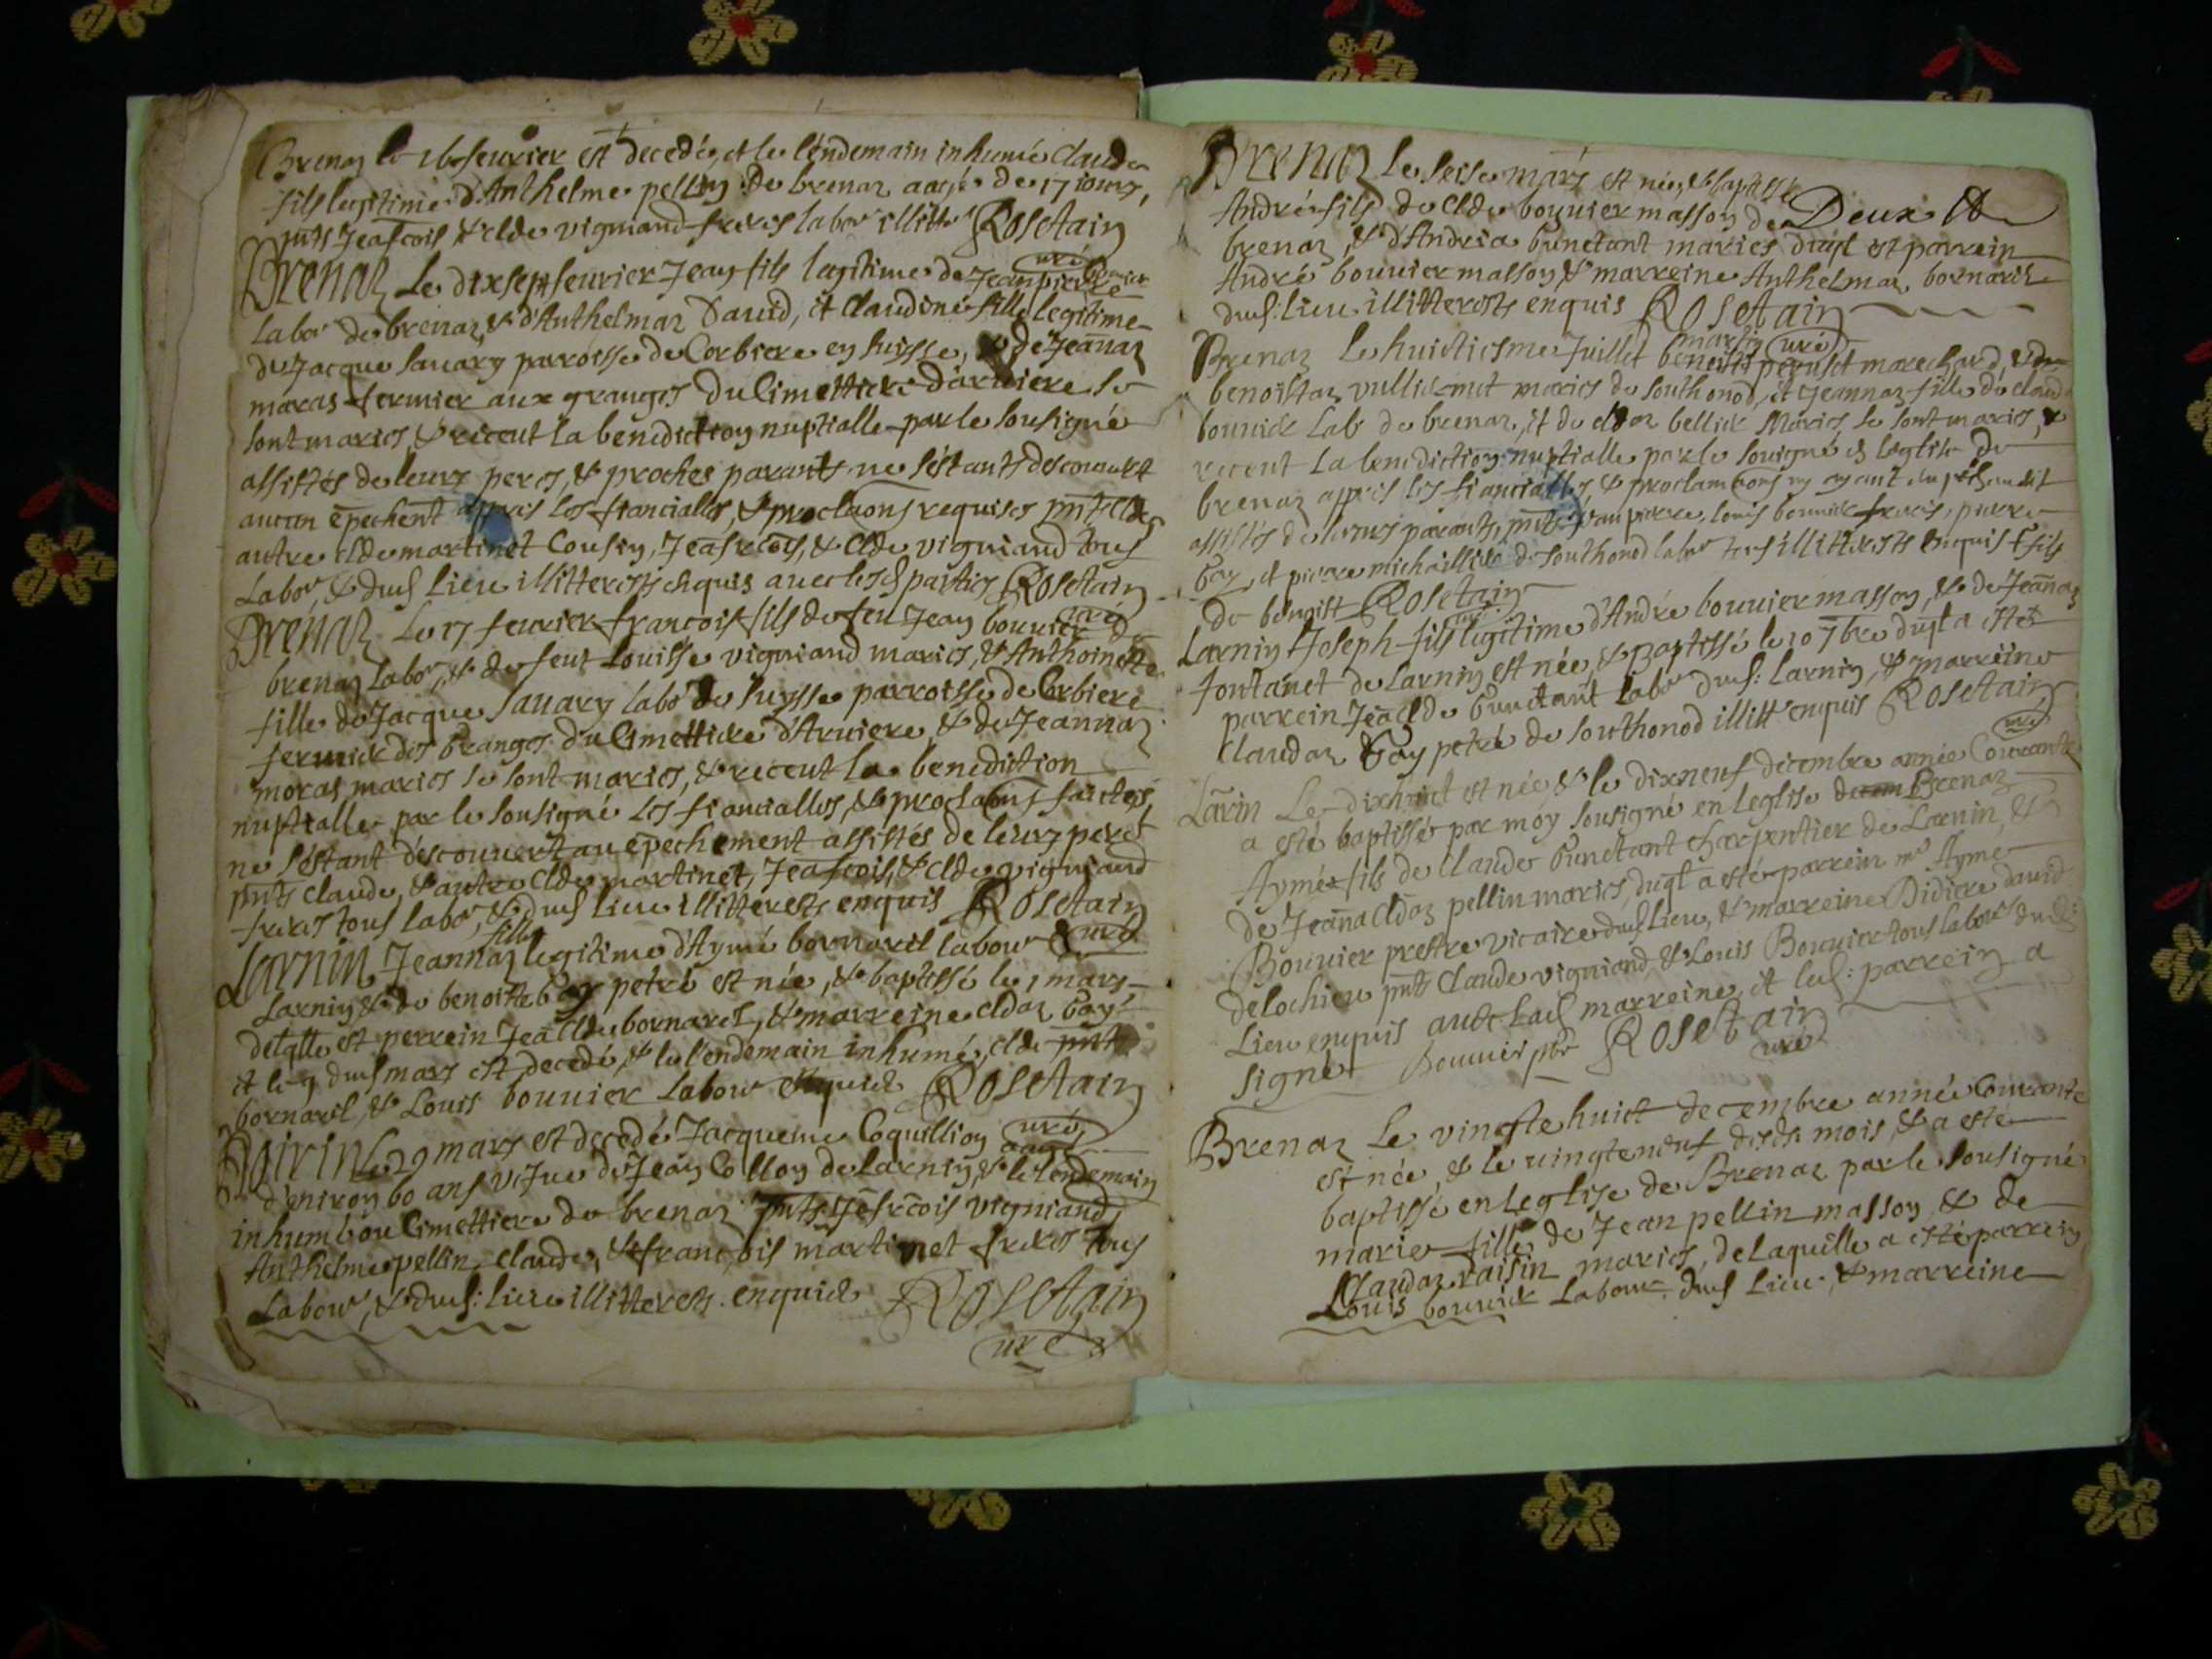 Brenaz le 16 feurier est decedé, et le lendemain inhumé Claude
fils legitime d'Anthelme pellin de brenaz aagé de 17 iours,
pnts Jeafcois & clde vigniand freres labor illitt Rosetain
curé
Brenaz Le dixsept feurier Jean fils legitime de Jean pierre bouuier
labor de brenaz & d'Anthelmaz Dauid, et Claudine fille legitime
de Jacque sauary parroisse de Corbiere en suysse, & de Jeanaz
maras fermier aux granges du Cimettiere d'aruiere se
sont mariés & receut la benediction nuptialle par le sousigné
assistés de leurs peres, & proches parants ne s'estants descouuert
aucun epechent appres les fiancialles, & proclaons requises pnts clde
autre clde martinet Cousin, Jeafrcois, & clde vigniand tous
Labor, & dud lieu illitterests enquis auec lesd parties Rosetain
curé
Brenaz Le 17 feurier francois fils de feu Jean bouuier de
brenaz labor, & de feue Louisse vigniand mariés, & Anthoinette
fille de Jacque sauary labor de suysse parroisse de Corbiere
fermier des Granges du Cimettiere d'Aruiere & de Jeannaz
moras mariés se sont mariés, & receut la benediction
nuptialle par le sousigné les fiancialles, & proclaons faictes,
ne s'estant descouuert au epechement assistés de leurs peres
pnts Claude, & autre clde martinet, Jeafcois, & clde vigniand
freres tous labor, & dud lieu illitterests enquis Rosetain
curé
Larnin Jeannaz fille legitime d'Aymé bornarel labour de
Larnin & de benoitte Gay petré est née, & baptissé le 1 mars
delqlle est perrein Jea clde bornarel, & marreine cldaz Gay
et le 9 dud mars est decedé, & le lendemain inhumé, clde pnt
bornarel, & Louis bouuier Labour enquis Rosetain
curé
Le 29 mars est decedé Jacqueme Coquillion aag
d'enuiron 60 ans vefue de Jean Collon de Larnin, & le lendemain
inhumé au Cimettiere de brenaz pnts Jefrcois vigniand
Anthelme pellin, Claude, & francois martinet freres tous
Labour, & dud: lieu illitterests enquis Rosetain
curé
Brenaz Le seise mars est née, & baptissé
André fils de clde bouuier masson de Deux
brenaz, & d'Andria Cunctant mariés duql est parrein
André bouuier masson & marreine Anthelmaz bornarel
dud: lieu illitterests enquis Rosetain
curé
Brenaz Le huictiesme Juillet martin benoist peruset marechand, & de
benoistaz vulliermet mariés de southonod, et Jeannaz fille de claude
bouuier Lab de brenaz, et de cldaz bellier Mariés, se sont mariés, &
receut la benediction nuptialle par le sousigné en Leglise de
brenaz appres les fiancialles, & proclamaons ny ayant empechemt
assistés de leurs parants, pnts Jean pierre, Louis bouuier freres, pierre
Gay, et pierre michaillier de southonod labor tous illitterests enquis + fils
de benoist Rosetain
curé
Larnin Joseph fils legitime d'André bouuier masson, & de Jeanaz
fontanet de Larnin est née, & baptissé le 10 7bre duql a esté
parrein Jea clde Cunctant labor dud: larnin, & marreine
Claudaz Gay petré de southonod illitt enquis Rosetain
curé
Larin Le dixhuict est née & le dixneuf decembre année Courante
a esté baptissé par moy sousigné en Leglise de Brenaz
Aymé fils de Claude Cunctant charpentier de Larnin, &
de Jeana cldaz pellin mariés, duql a esté parrein mre Ayme
Bouuier prestre vicaire dud Lieu, & marreine Didiere dauid
de lochieu pnts Claude vigniand, & Louis Bouuier tous labour dud:
Lieu enquis auec lad marreine, et led: parrein a
signé Bouuier pbr Rosetain
curé
Brenaz Le vingtehuict decembre année Courante
est née, & le vingteneuf desd: mois, & a este
baptissé en Leglise de Brenaz par le sousigné
marie fille de Jean pellin masson, & de
Claudaz raisin mariés, de laquelle a esté parrein
Louis bouuier Labour dud Lieu, & marreine